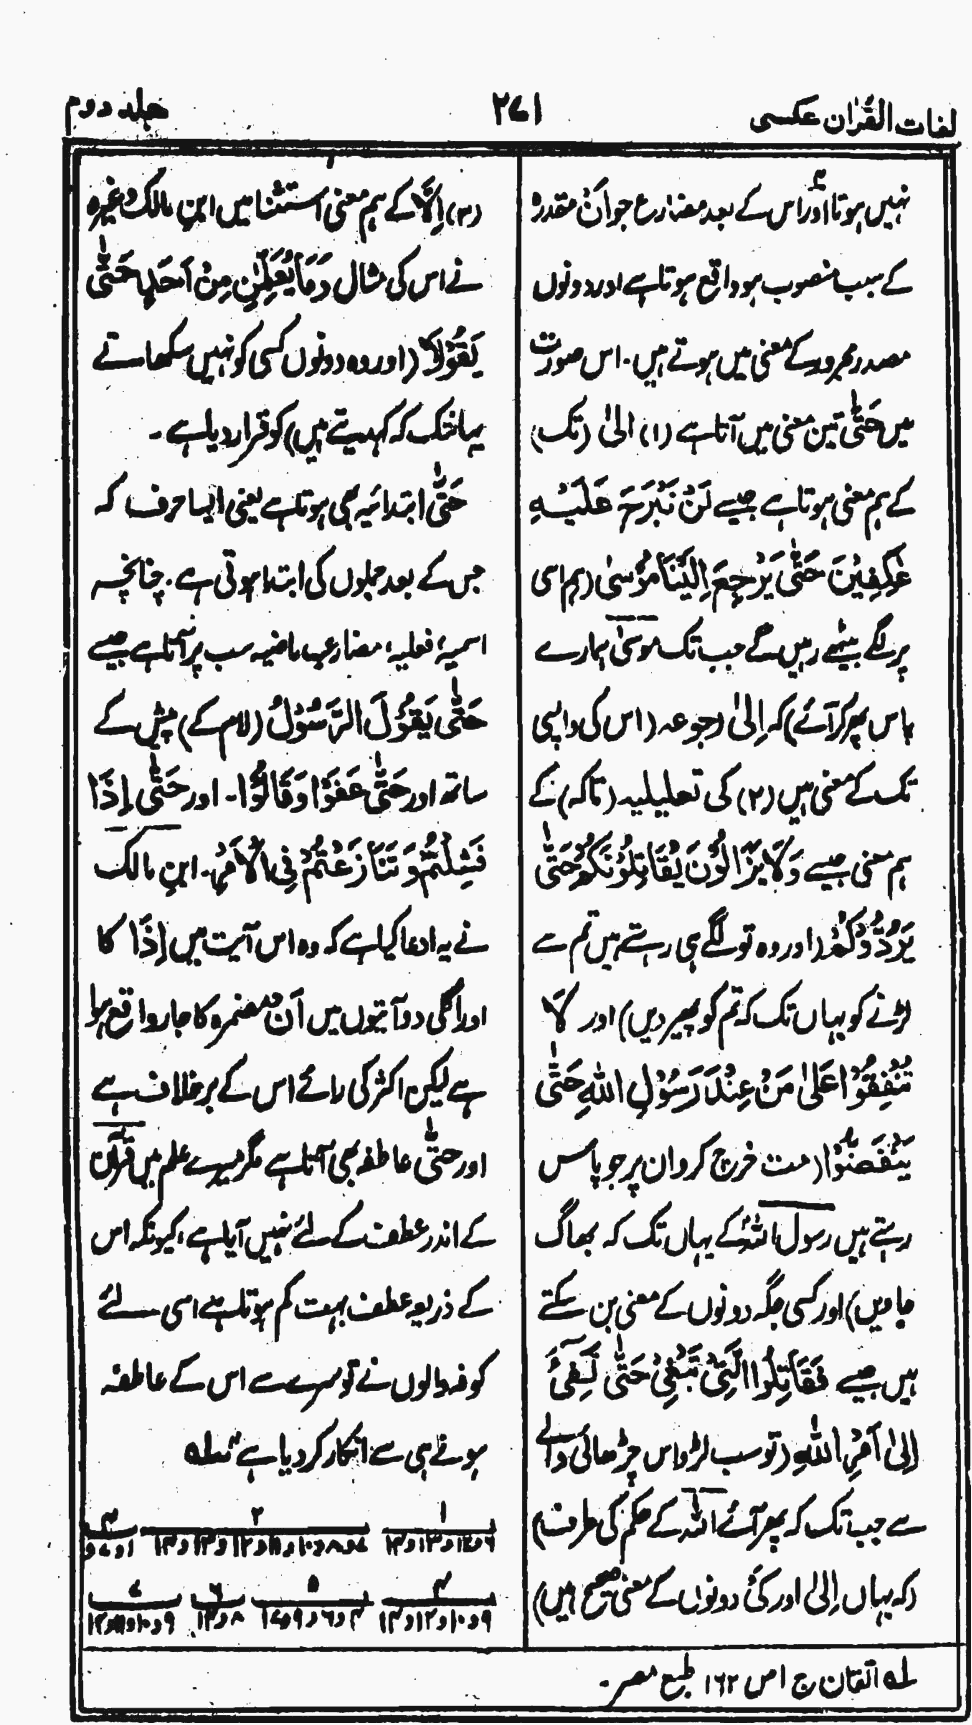 لغات القُرآن عکسی
۲۷۱
جلد دوم
نہیں ہوتا اور اس کے بعد مضارع جو اَنْ مقدرہ
کے سبب منصوب ہو واقع ہوتا ہے اور دونوں
مصدر مجرور کے معنی میں ہوتے ہیں۔ اس صورت
میں حَتّٰی تین معنی میں آتا ہے (۱) اِلیٰ (تک)
کے ہم معنی ہوتا ہے جیسے لَنْ نَبْرَحَ عَلَیْہِ
عٰکِفِیْنَ حَتّٰی یَرْجِعَ اِلَیْنَا مُوْسٰی (ہم اسی
پر لگے بیٹھے رہیں گے جب تک موسیٰ ہمارے
پاس پھر کر آئے) کہ اِلیٰ رجوعہ (اس کی واپسی
تک کے معنی ہیں (۲) کی تعلیلیہ (تاکہ) کے
ہم معنی جیسے وَلَا یَزَالُوْنَ یُقَاتِلُوْنَکُمْ حَتّٰی
یَرُدُّوْکُمْ (اور وہ تو لگے ہی رہتے ہیں تم سے
لڑنے کو یہاں تک کہ تم کو پھیر دیں) اور لَا
تُنْفِقُوْا عَلیٰ مَنْ عِنْدَ رَسُوْلِ اللّٰہِ حَتّٰی
یَنْفَضُّوْا (مت خرچ کرو ان پر جو پاس
رہتے ہیں رسول اللّٰہؐ کے یہاں تک کہ بھاگ
جاویں) اور کسی جگہ دونوں کے معنی بن سکتے
ہیں جیسے فَقَاتِلُوا الَّتِیْ تَبْغِیْ حَتّٰی تَفِیْٓءَ
اِلیٰ اَمْرِ اللّٰہِ (تو سب لڑو اس چڑھائی والے
سے جب تک کہ پھر آئے اللہ کے حکم کی طرف)
(کہ یہاں اِلیٰ اور کَیْ دونوں کے معنی صحیح ہیں)
(۳) اِلَّا کے ہم معنی استثنا میں ابنِ مالک وغیرہ
نے اس کی مثال وَمَا یُعَلِّمٰنِ مِنْ اَحَدٍ حَتّٰی
یَقُوْلَا (اور وہ دونوں کسی کو نہیں سکھاتے
یہانتک کہ کہدیتے ہیں) کو قرار دیا ہے۔
حَتّٰی ابتدائیہ بھی ہوتا ہے یعنی ایسا حرف کہ
جس کے بعد جملوں کی ابتداء ہوتی ہے۔ چنانچہ
اسمیہ، فعلیہ، مضارع، ماضیہ سب پر آتا ہے جیسے
حَتّٰی یَقُوْلَ الرَّسُوْلُ (لام کے) پیش کے
ساتھ اور حَتّٰی عَفَوْا وَقَالُوْا۔ اور حَتّٰی اِذَا
فَشِلْتُمْ وَتَنَازَعْتُمْ فِی الْاَمْرِ۔ ابنِ مالک
نے یہ ادعا کیا ہے کہ وہ اس آیت میں اِذَا کا
اور اگلی دو آیتوں میں اَنْ مضمرہ کا جار واقع ہوا
ہے لیکن اکثر کی رائے اس کے برخلاف ہے
اور حتّٰی عاطفہ بھی آتا ہے مگر میرے علم میں قرآن
کے اندر عطف کے لئے نہیں آیا ہے، کیونکہ اس
کے ذریعہ عطف بہت کم ہوتا ہے اسی لئے
کوفہ والوں نے تو سرے سے اس کے عاطفہ
ہونے ہی سے انکار کر دیا ہے
لہ اتقان ج ۱ ص ۱۶۲ طبع مصر۔